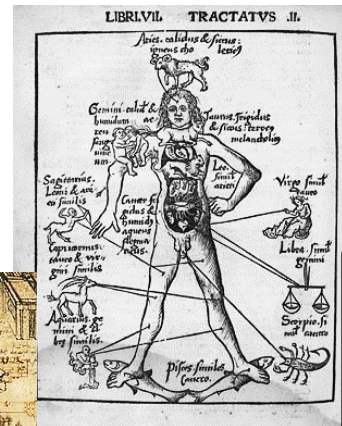 LIBRI.VII. TRACTATVS .II.
Aries. calidus & siccus:
igneus cho lericꝰ
Gemini. calid' & ae
humidum
reu
sang
uine
um
Taurus. frigidus
& siccus terreꝰ
melancolicꝰ
Leo
simil
arieti
Sagittarius.
Leoni & ari
eti similis
Cancer fri
gidus &
humidꝰ
aqueus
flema
ticus.
Virgo simil'
tauro
Capricornus.
tauro & vir
gini similis
Libra. simil'
gemini
Aquarius. ge
mini & li
bre similis.
Scorpio. si
mil' cancro
Pisces. similes
Cancro.